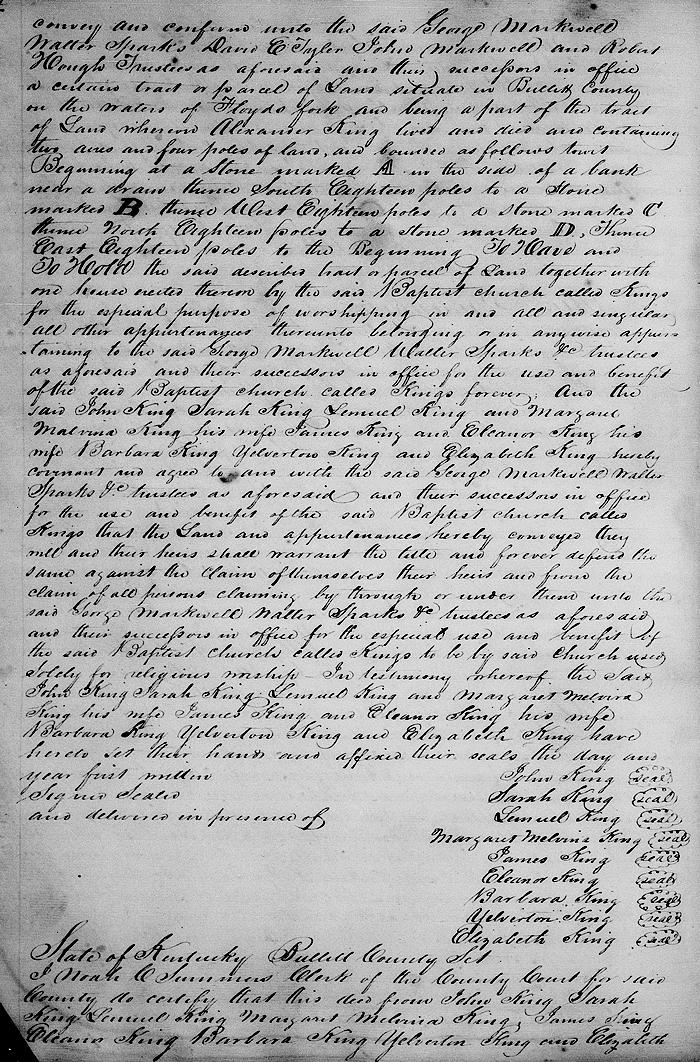 convey and confirm unto the said George Markwell
Walter Sparks David C Tyler John Markwell and Robert
Hough Trustees as aforesaid and their successors in office
a certain tract or parcel of Land situate in Bullitt County
on the waters of Floyds fork and being a part of the tract
of Land whereon Alexander King lived and died and containing
two acres and four poles of land, and bounded as follows towit
Beginning at a Stone marked A in the side of a bank
near a drain thence South Eighteen poles to a Stone
marked B. thence West Eighteen poles to a stone marked C
thence North Eighteen poles to a Stone marked D, Thence
East Eighteen poles to the Beginning To Have and
To Hold the said described trait or parcel of Land together with
one house erected thereon by the said Baptist church called Kings
for the especial purpose of worshipping in and all and singular
all other appurtenages thereunto belonging or in anywise apper
taining to the said George Markwell Walter Sparks &c trustees
as aforesaid and their successors in office for the use and benefit
of the said Baptist church called Kings forever; And the
said John King Sarah King Lemuel King and Margaret
Malvina King his wife James King and Eleanor King his
wife Barbara King Yelverton King and Elizabeth King hereby
covenant and agree to and with the said George Markwell Walter
Sparks &c trustees as aforesaid and their successors in office
for the use and benefit of the said Baptist church called
Kings that the Land and appurtenances hereby conveyed they
will and their heirs shall warrant the title and forever defend the
same against the claim of themselves their heirs and from the
claim of all persons claiming by through or under them unto the
said George Markwell Walter Sparks &c trustees as aforesaid
and their successors in office for the especial use and benefit of
the said Baptist church called Kings to be by said Church used
solely for religious worship - In testimony whereof the said
John King Sarah King Lemuel King and Margaret Melvira
King his wife James King and Eleanor King his wife
Barbara King Yelverton King and Elizabeth King have
hereto set their hands and affixed their seals the day and
year first written
John King seal
Signed Sealed
Sarah King seal
and delivered in presence of
Lemuel King seal
Margaret Melvina King seal
James King seal
Eleanor King seal
Barbara King seal
Yelverton King seal
Elizabeth King seal
State of Kentucky Bullitt County Sct.
I Noah C Summers Clerk of the County Court for said
County do certify that this deed from John King Sarah
King Lemuel King Margaret Melvina King, James King
Eleanor King Barbara King Yelverton King and Elizabeth